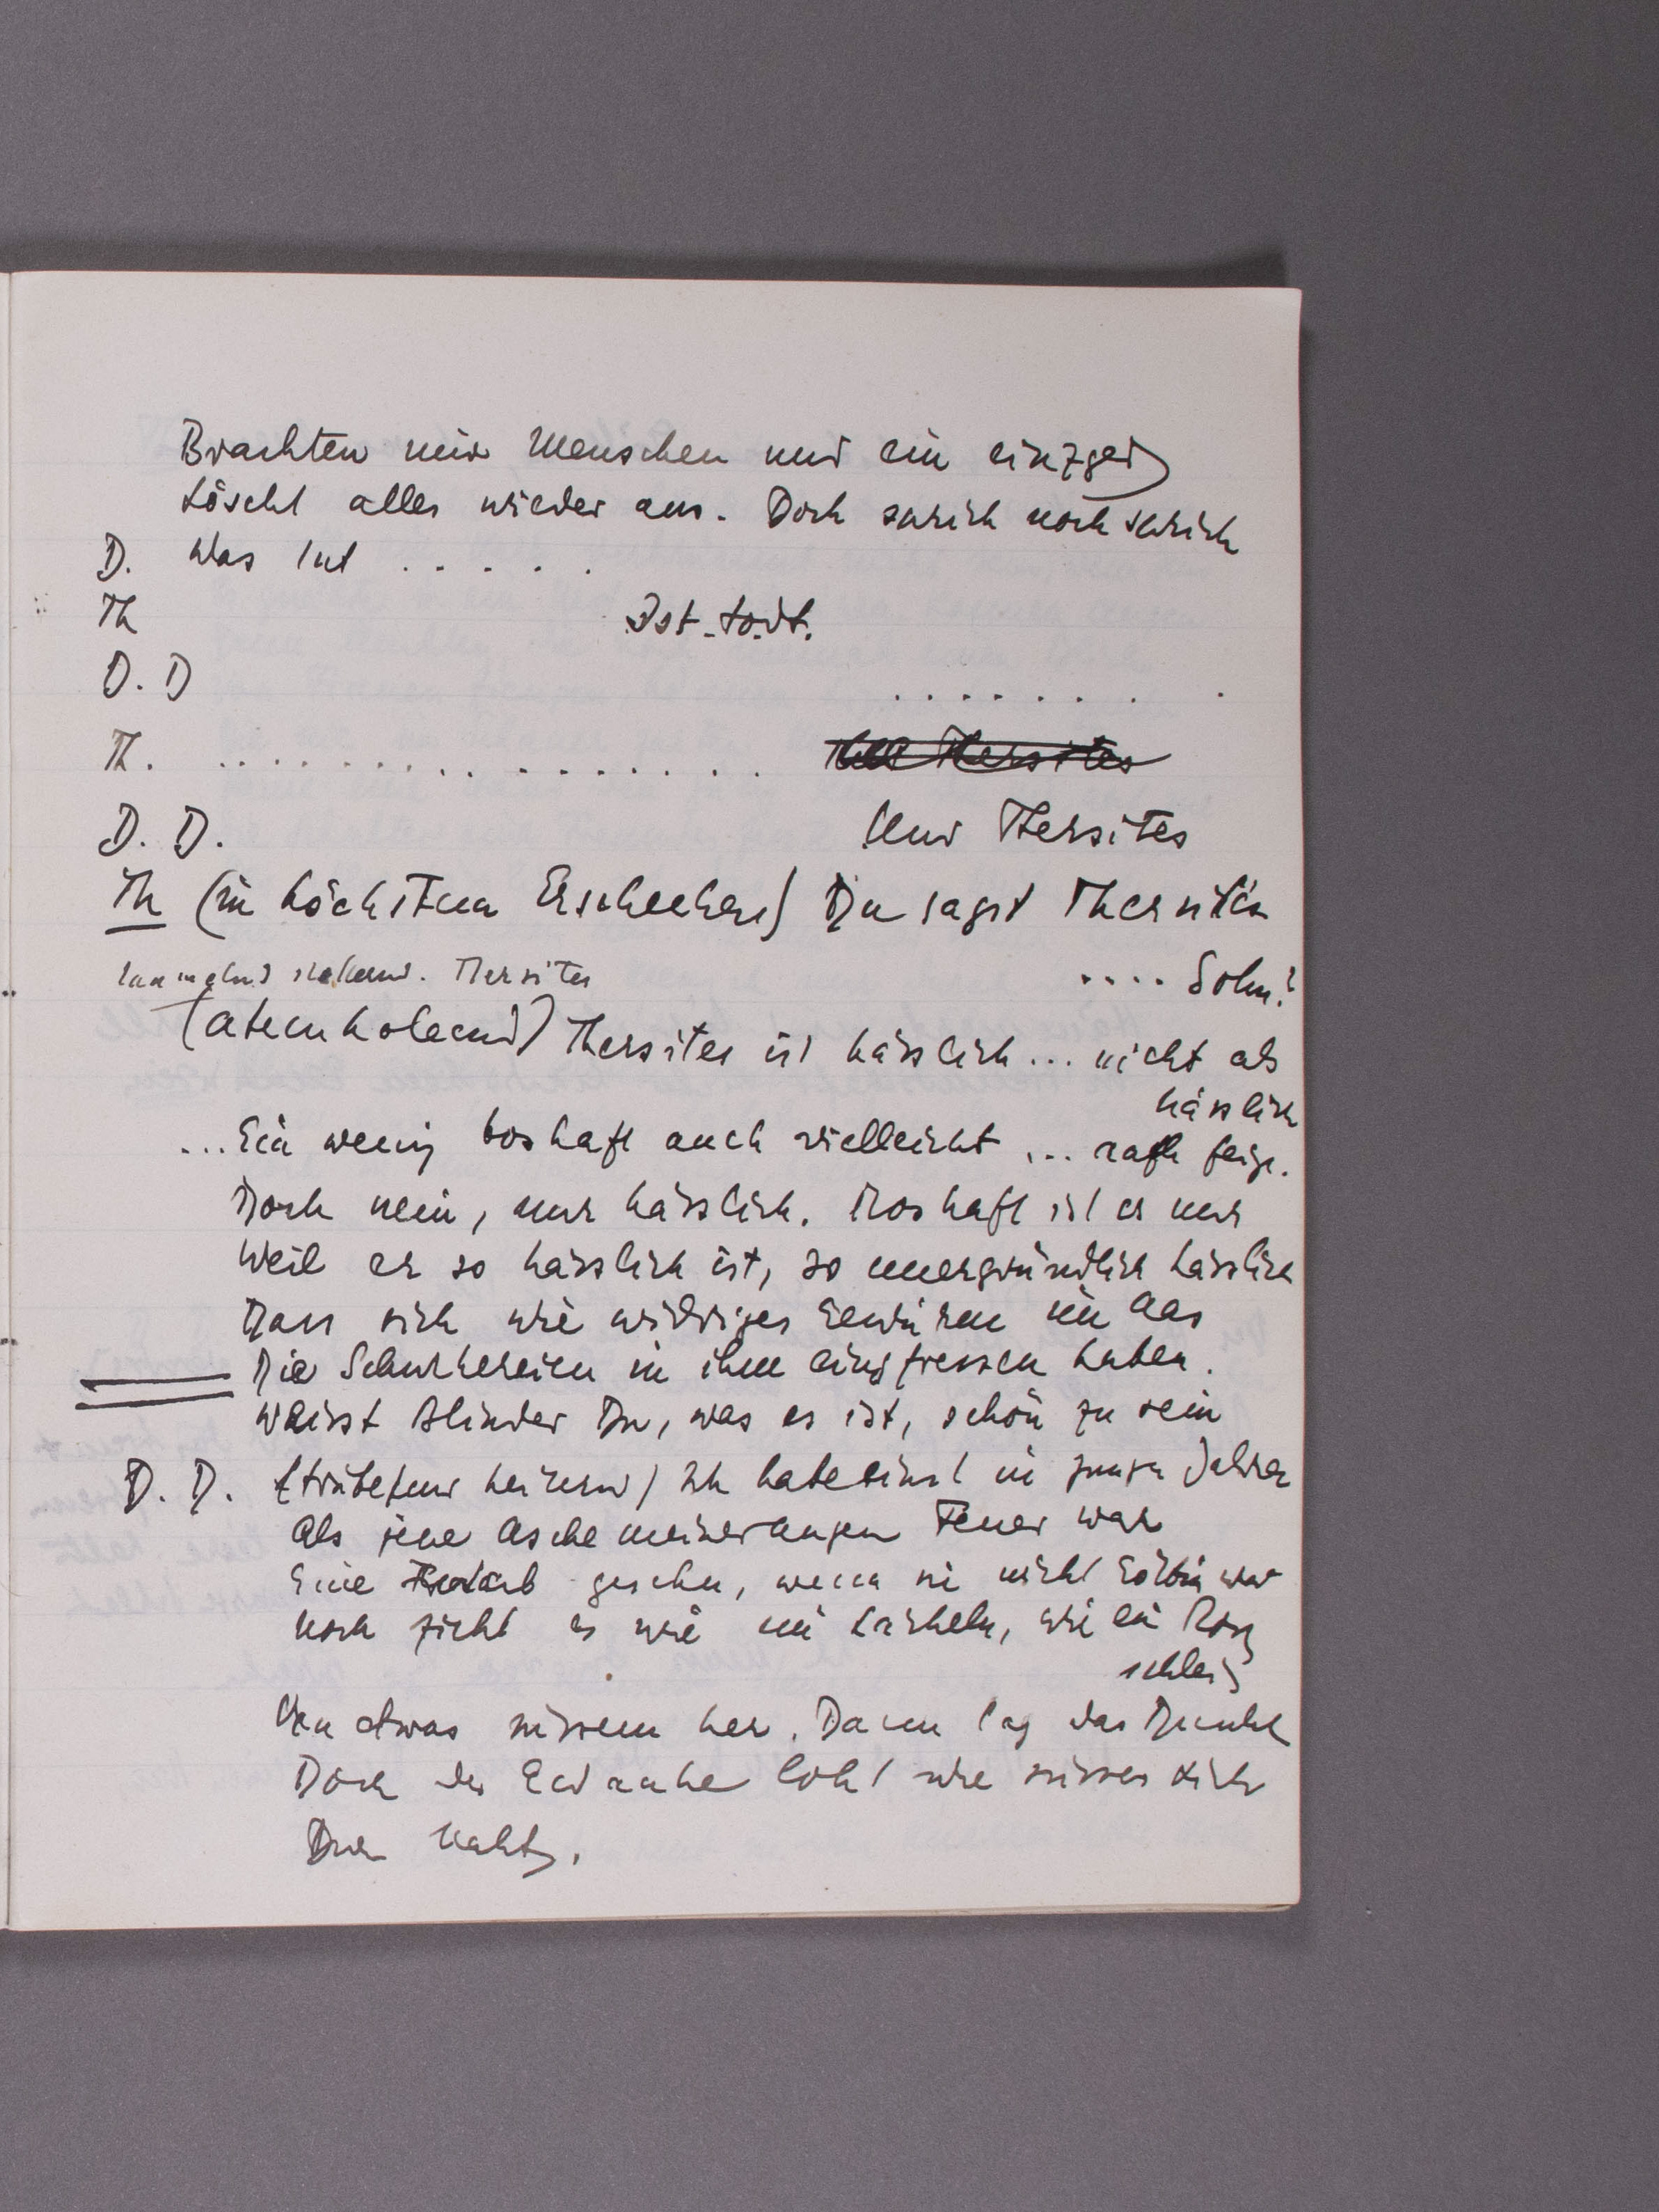 Brachten mir Menschen und ein einzger
Löscht alles wieder aus. Doch sprich noch sprich
D. Was tut . . . . .
Th Ist todt.
D. D . . . . . . . .
Th. . . . . . . . . . . . . . . . .
D. D. Und Thersites
Th (in höchstem Erschrecken) Du sagst Thersites
.... Sohn?
Thersites
(atemholend) Thersites ist hässlich ... nicht als
hässlich
... Ein wenig boshaft auch vielleicht ... feige.
Doch nein, nur hässlich. Boshaft ist er nur
Weil er so hässlich ist, so unergründlich hässlich
Dass sich wie widriges Gewürm im Aas
Die Schurkereien in ihm eingefressen haben.
Weisst Blinder Du, was es ist, schön zu sein
D. D. Ich habe einst in jungen Jahren
Als jene Asche meiner Augen Feuer war
Eine gesehn, wenn sie nicht Göttin war
Noch zieht es wie ein Lächeln, wie ein
Von etwas süssem her. Dann lag das Dunkel
Doch der Gedanke loht wie süsses Licht
Durch Nacht.